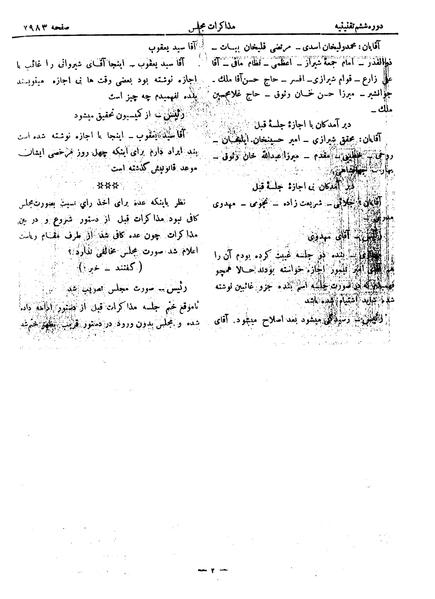 دوره ششم تقنینیه
مذاکرات مجلس
صفحه ۲۹۸۳
آقایان: محمدولیخان اسدی ـ مرتضی قلیخان بیات ـ
ذوالقدر ـ امام جمعهٔ شیراز ـ اعظمی ـ نظام مافی ـ آقا
علی زارع ـ قوام شیرازی ـ افسر ـ حاج حسن آقا ملک ـ
جوانشیر ـ میرزا حسن خان وثوق ـ حاج غلامحسین
ملک ـ
دیر آمدگان با اجازهٔ جلسهٔ قبل
آقایان: محقق شیرازی ـ امیر حسینخان ایلخان ـ
روحی ـ عظیمی ـ مقدم ـ میرزا عبدالله خان وثوق ـ
دیر آمدگان بی اجازه جلسهٔ قبل
آقایان: جلائی ـ شریعت زاده ـ نجومی ـ مهدوی
رئیس ـ آقای مهدوی
ـ بنده دو جلسه غیبت کرده بودم آن را
هم آقای امیر تیمور اجازه خواسته بودند حالا همچو
در صورت جلسه اسم بنده جزو غائبین نوشته
شده شاید اشتباه شده باشد
رئیس ـ رسیدگی میشود بعد اصلاح میشود. آقای
آقا سید یعقوب
آقا سید یعقوب ـ اینجا آقای شیروانی را غائب با
اجازه نوشته بود بعضی وقت ها بی اجازه مینویسند
بنده نفهمیدم چه چیز است
رئیس ـ از کمیسیون تحقیق میشود
آقا سید یعقوب ـ اینجا با اجازه نوشته شده است
بنده ایراد دارم برای اینکه چهل روز مرخصی ایشان
موعد قانونیش گذشته است
***
نظر باینکه عده برای اخذ رأی نسبت بصورت مجلس
کافی نبود مذاکرات قبل از دستور شروع و در بین
مذاکرات چون عده کافی شد از طرف مقام ریاست
اعلام شد صورت مجلس مخالفی ندارد؟
( گفتند ـ خیر )
رئیس ـ صورت مجلس تصویب شد
تاموقع ختم جلسه مذاکرات قبل از دستور ادامه داده
شده و مجلس بدون ورود در دستور قریب بظهر ختم شد
— ۲ —